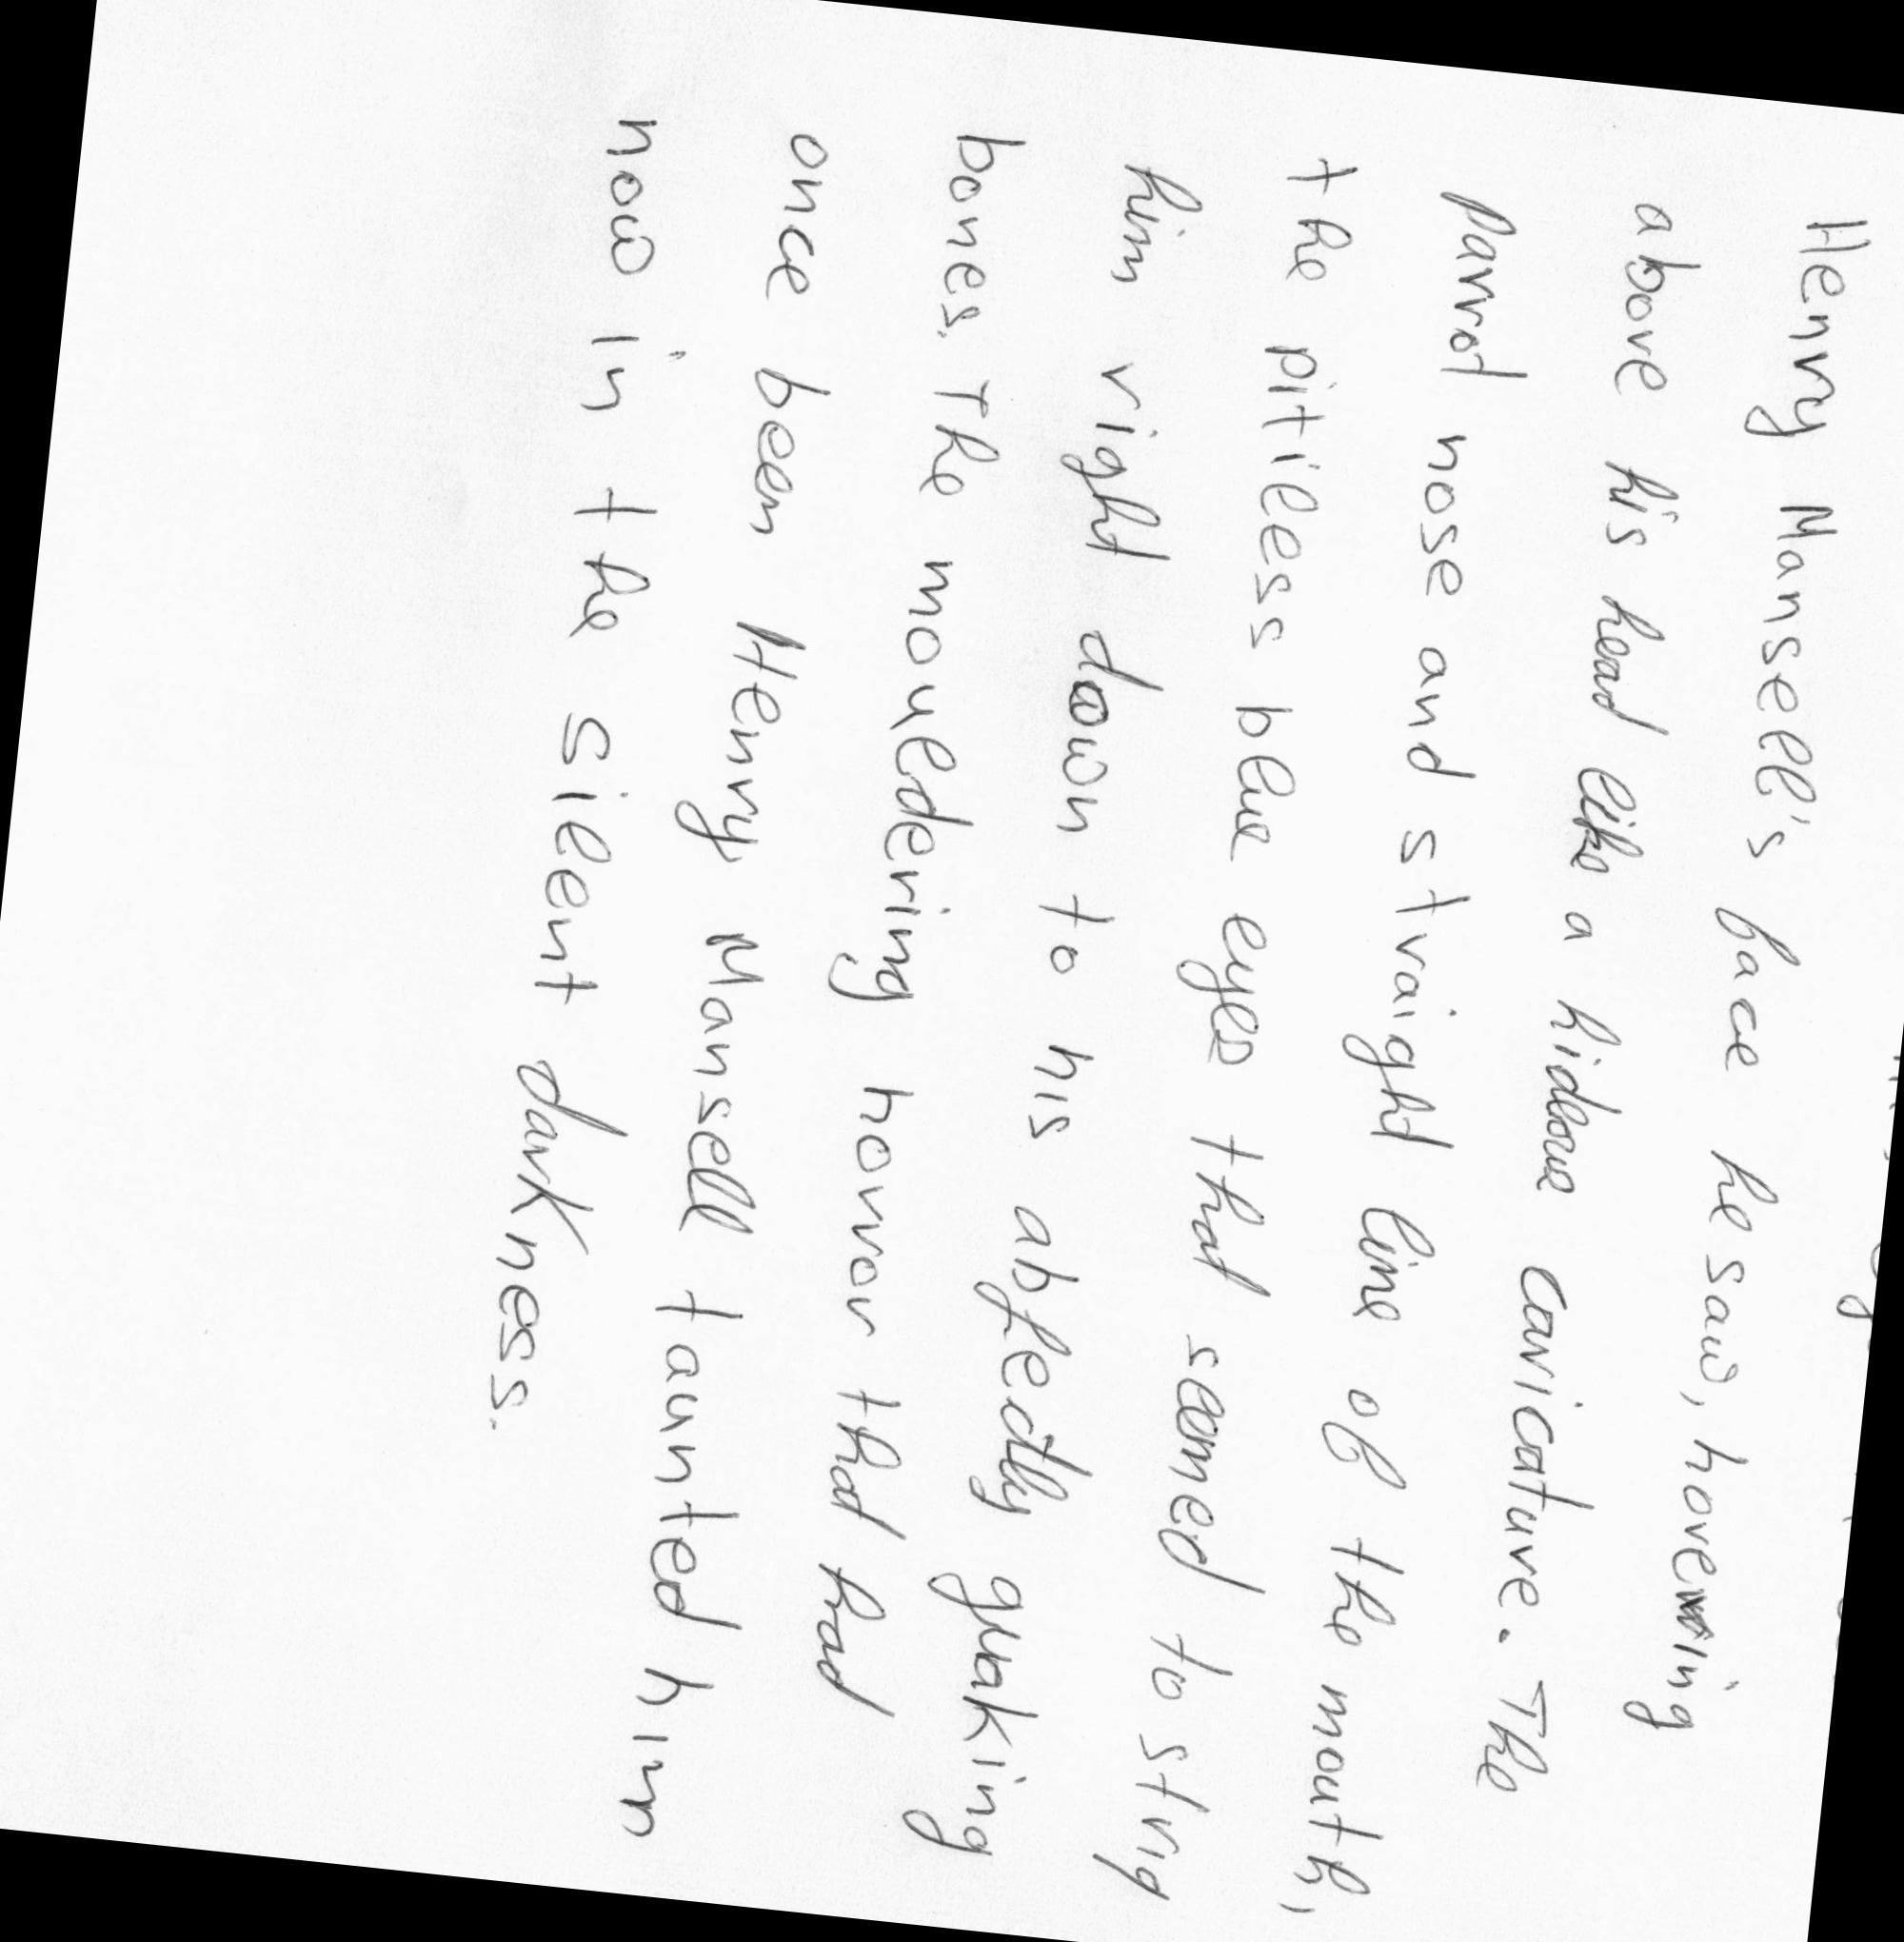 Henry Mansell's face he saw, hovering
above his head like a hideous caricature. The
parrot nose and straight line of the mouth,
the pitiless blue eyes that seemed to strip
him right down to his abjectly quaking
bones. The mouldering horror that had
once been Henry Mansell taunted him
now in the silent darkness.